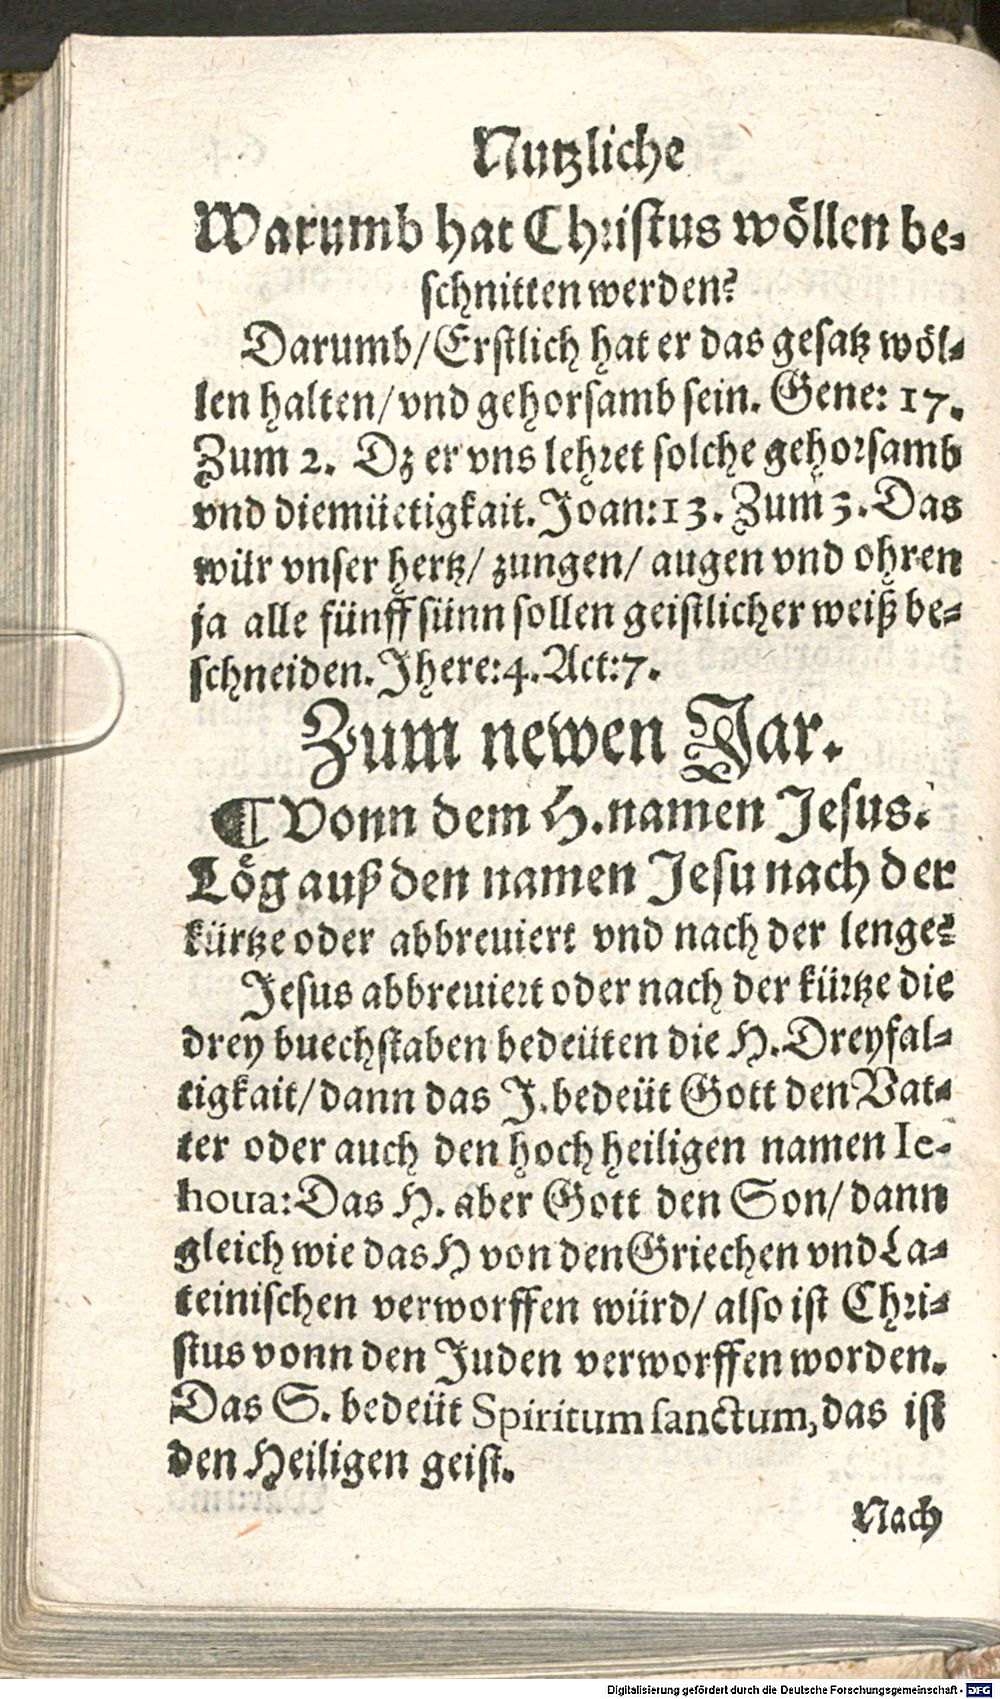 Nutzliche
Warumb hat Christus wöllen be-
schnitten werden?
Darumb/Erstlich hat er das gesatz wöl-
len halten/vnd gehorsamb sein. Gene: 17.
Zum 2. Dz er vns lehret solche gehorsamb
vnd diemüetigkait. Joan:13. Zum 3. Das
wiir vnser hertz/ zungen/ augen vnd ohren
ja alle fünff sünn sollen geistlicher weiß be-
schneiden. Jhere:4. Act:7.
Zum newen Jar.
¶ Vonn dem H. namen Jesus.
Lög auß den namen Jesu nach der
kürtze oder abbreuiert vnd nach der lenge?
Jesus abbreuiert oder nach der kürtze die
drey buechstaben bedeüten die H. Dreyfal-
tigkait/dann das J. bedeüt Gott den Vat-
ter oder auch den hoch heiligen namen Ie-
houa: Das H. aber Gott den Son/ dann
gleich wie das H von den Griechen vnd La-
teinischen verworffen würd/ also ist Chri-
stus vonn den Juden verworffen worden.
Das S. bedeüt Spiritum sanctum, das ist
den Heiligen geist.
Nach
Digitalisierung gefördert durch die Deutsche Forschungsgemeinschaft - DFG